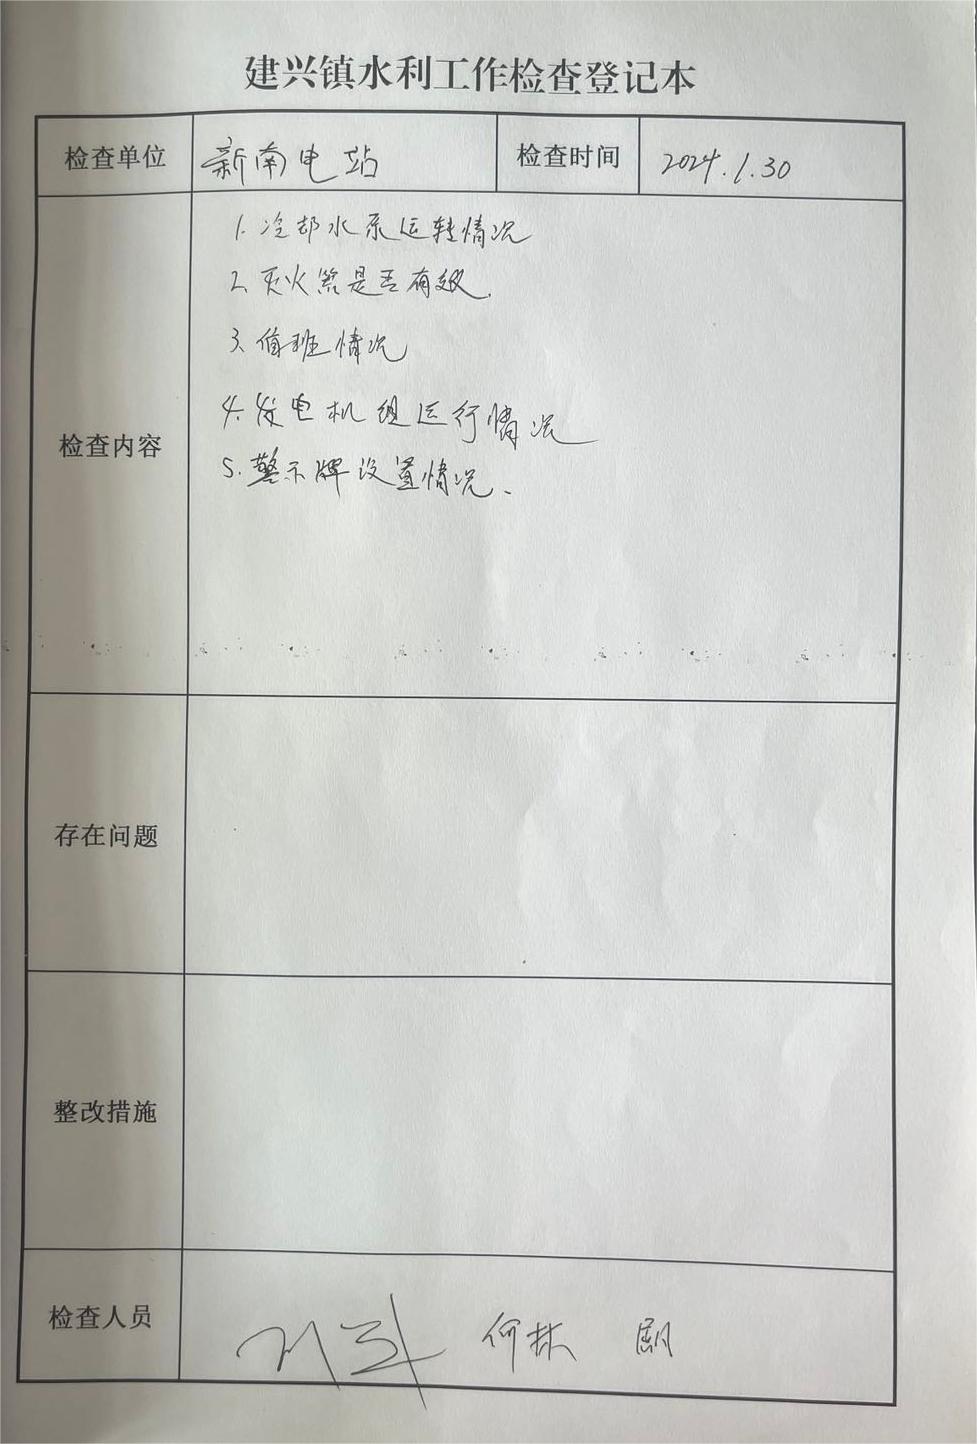 建兴镇水利工作检查登记本
检查单位 新南电站 检查时间 2024.1.30
检查内容
1. 冷却水泵运转情况
2. 灭火器是否有效.
3. 值班情况
4. 发电机组运行情况
5. 警示牌设置情况.
存在问题
整改措施
检查人员 何林